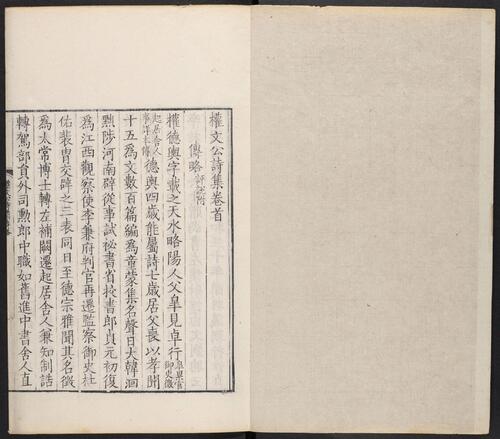 權文公詩集卷首
傳略 評註附
權德輿字載之天水略陽人父皐見卓行
起居舍人
德輿四歲能屬詩七歲居父喪以孝聞
十五爲文數百篇編爲童蒙集名聲日大韓洄
黜陟河南辟從事試祕書省校書郎貞元初復
爲江西觀察使李兼府判官再遷監察御史杜
佑裴胄交辟之二表同日至德宗雅聞其名徵
爲太常博士轉左補闕遷起居舍人兼知制誥
轉駕部員外司勳郎中職如舊進中書舍人直